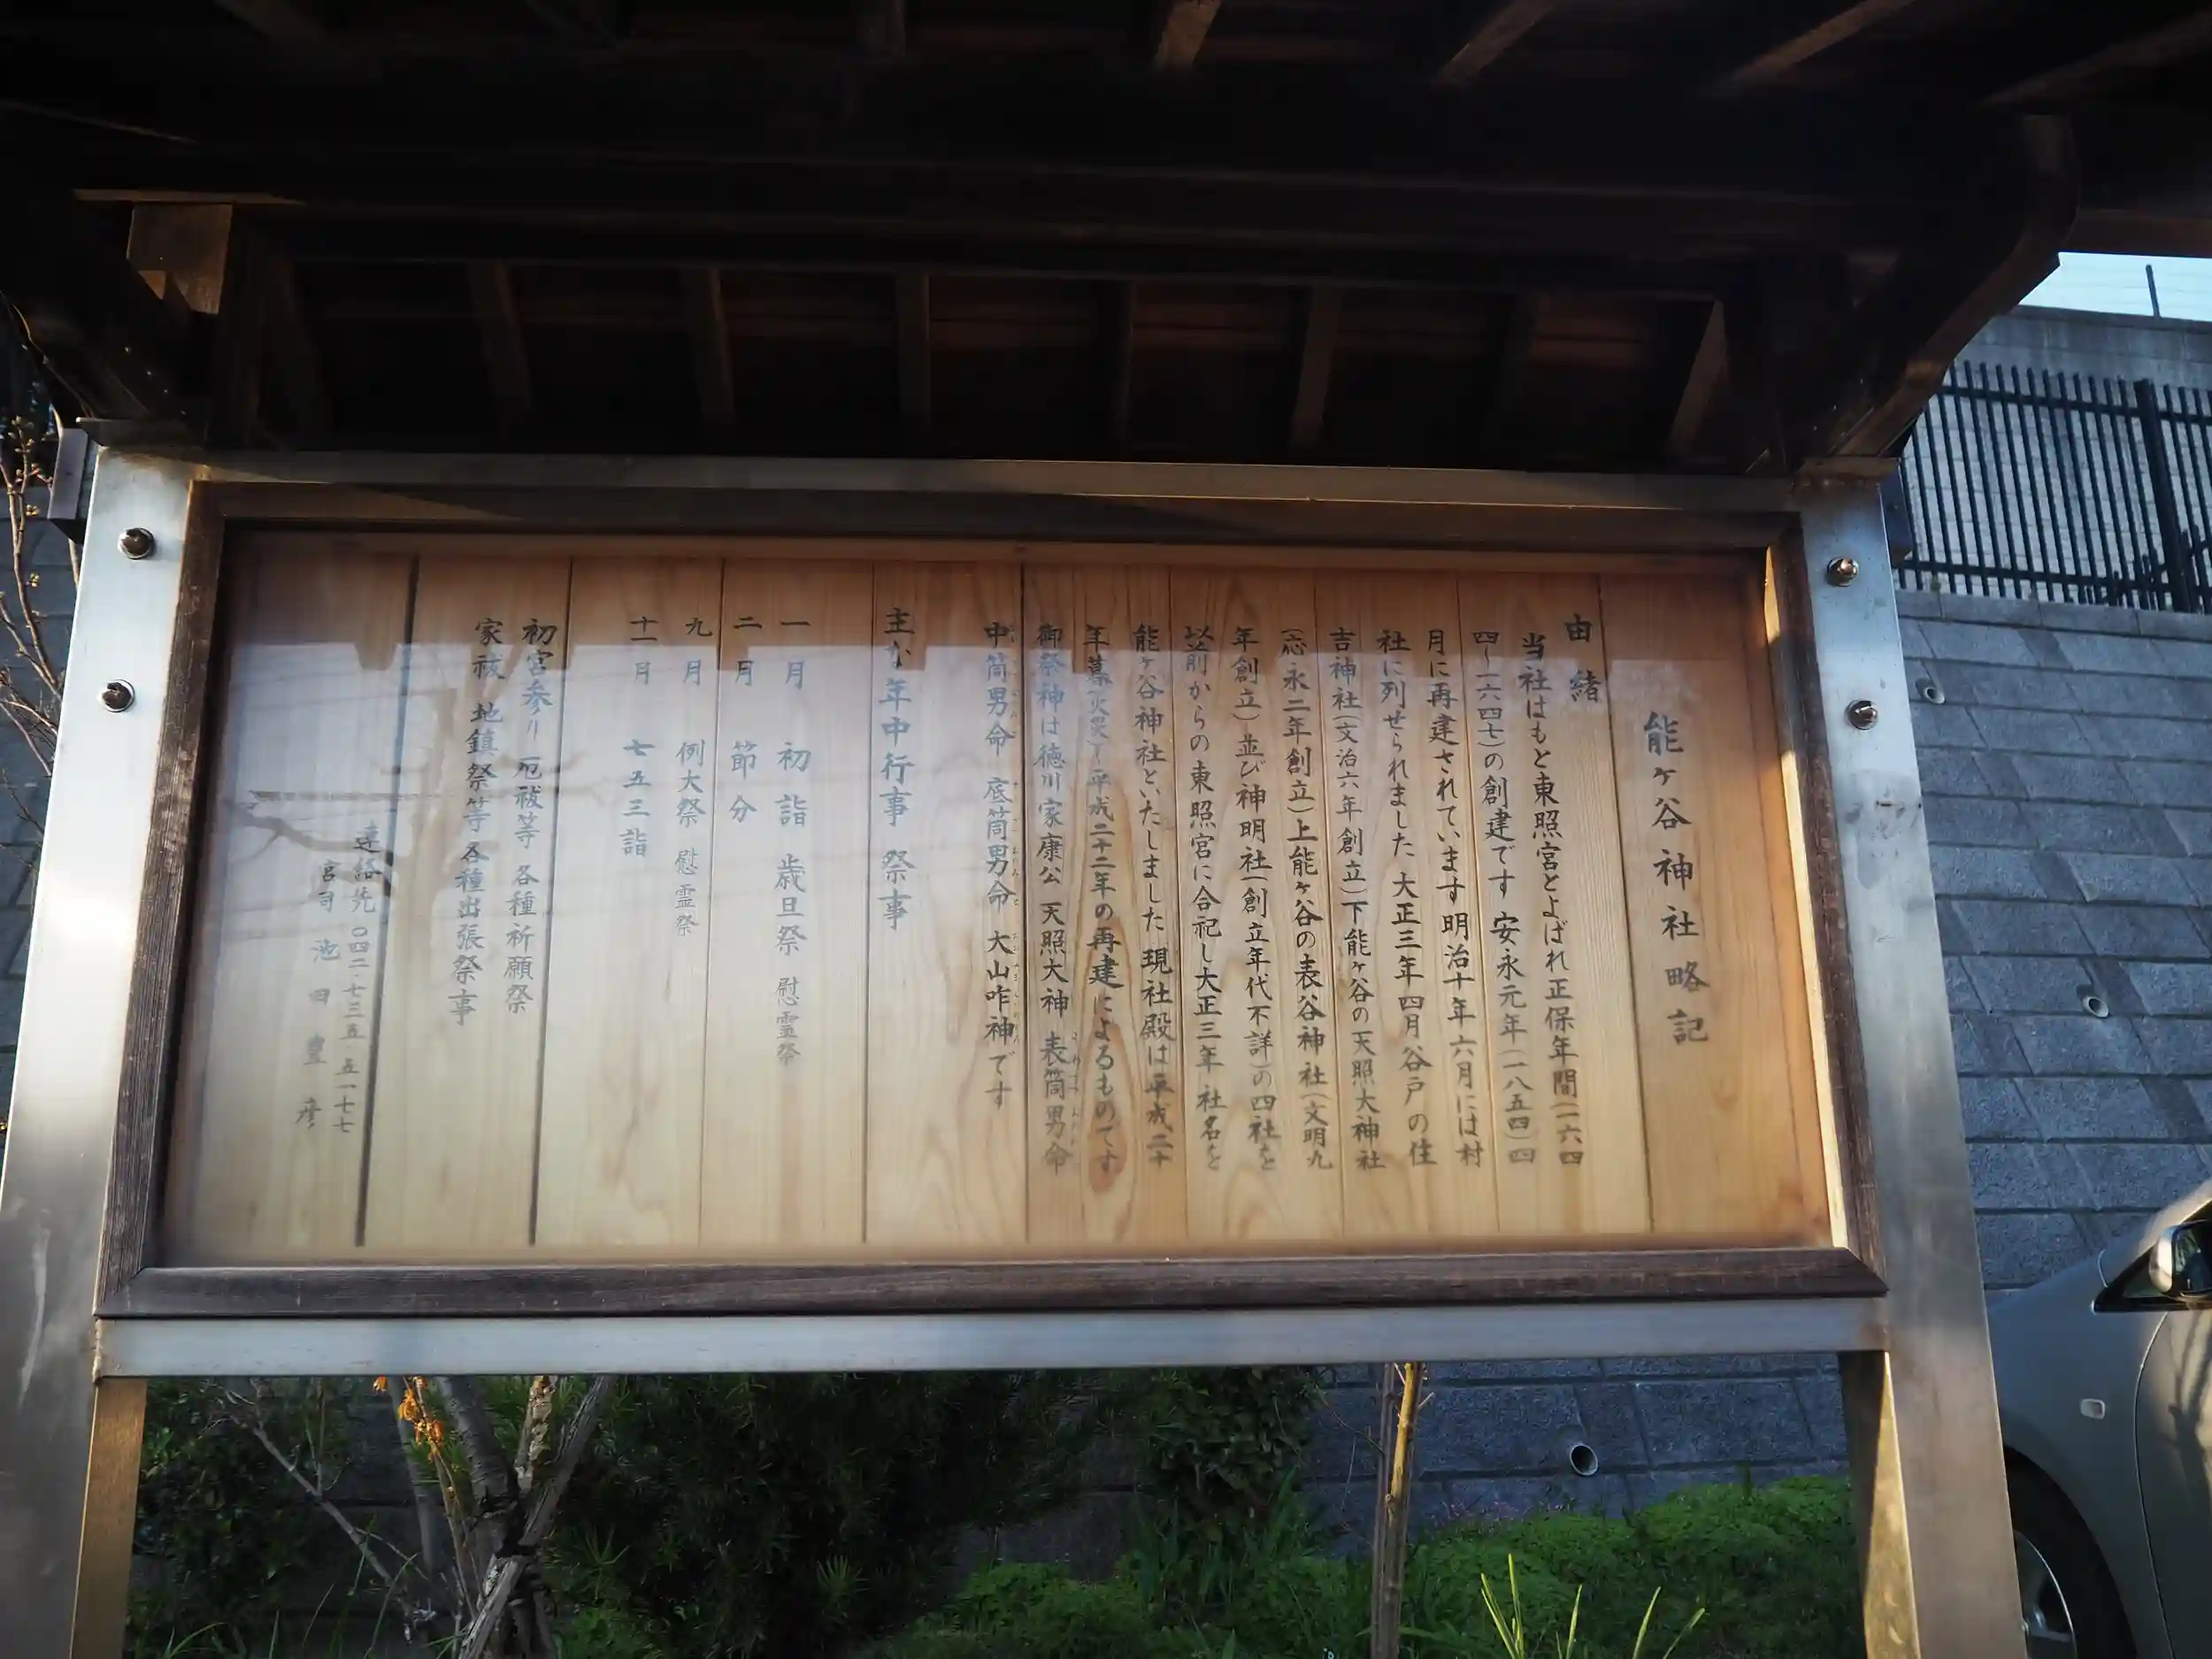 能ヶ谷神社略記
由緒
当社はもと東照宮とよばれ正保年間(一六四
四〜一六四七)の創建です 安永元年(一八五四)四
月に再建されています 明治十年六月には村
社に列せられました 大正三年四月谷戸の住
吉神社(文治六年創立)下能ヶ谷の天照大神社
(応永二年創立)上能ヶ谷の表谷神社(文明九
年創立)並び神明社(創立年代不詳)の四社を
以前からの東照宮に合祀し大正三年 社名を
能ヶ谷神社といたしました 現社殿は平成二十
年暮(火災)ー平成二十二年の再建によるものです
御祭神は徳川家康公 天照大神 表筒男命
中筒男命 底筒男命 大山咋神です
主な年中行事 祭事
一月 初詣 歳旦祭 慰霊祭
二月 節分
九月 例大祭 慰霊祭
十一月 七五三詣
初宮参り 厄祓等 各種祈願祭
家祓 地鎮祭等 各種出張祭事
連絡先 〇四二・七三五 五一七七
宮司 池田豊彦